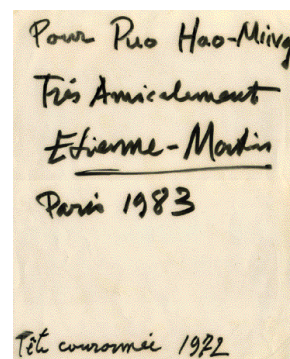 Pour Puo Hao-Miing
Très Amicalement
Etienne-Martin
Paris 1983
Tête couronnée 1972